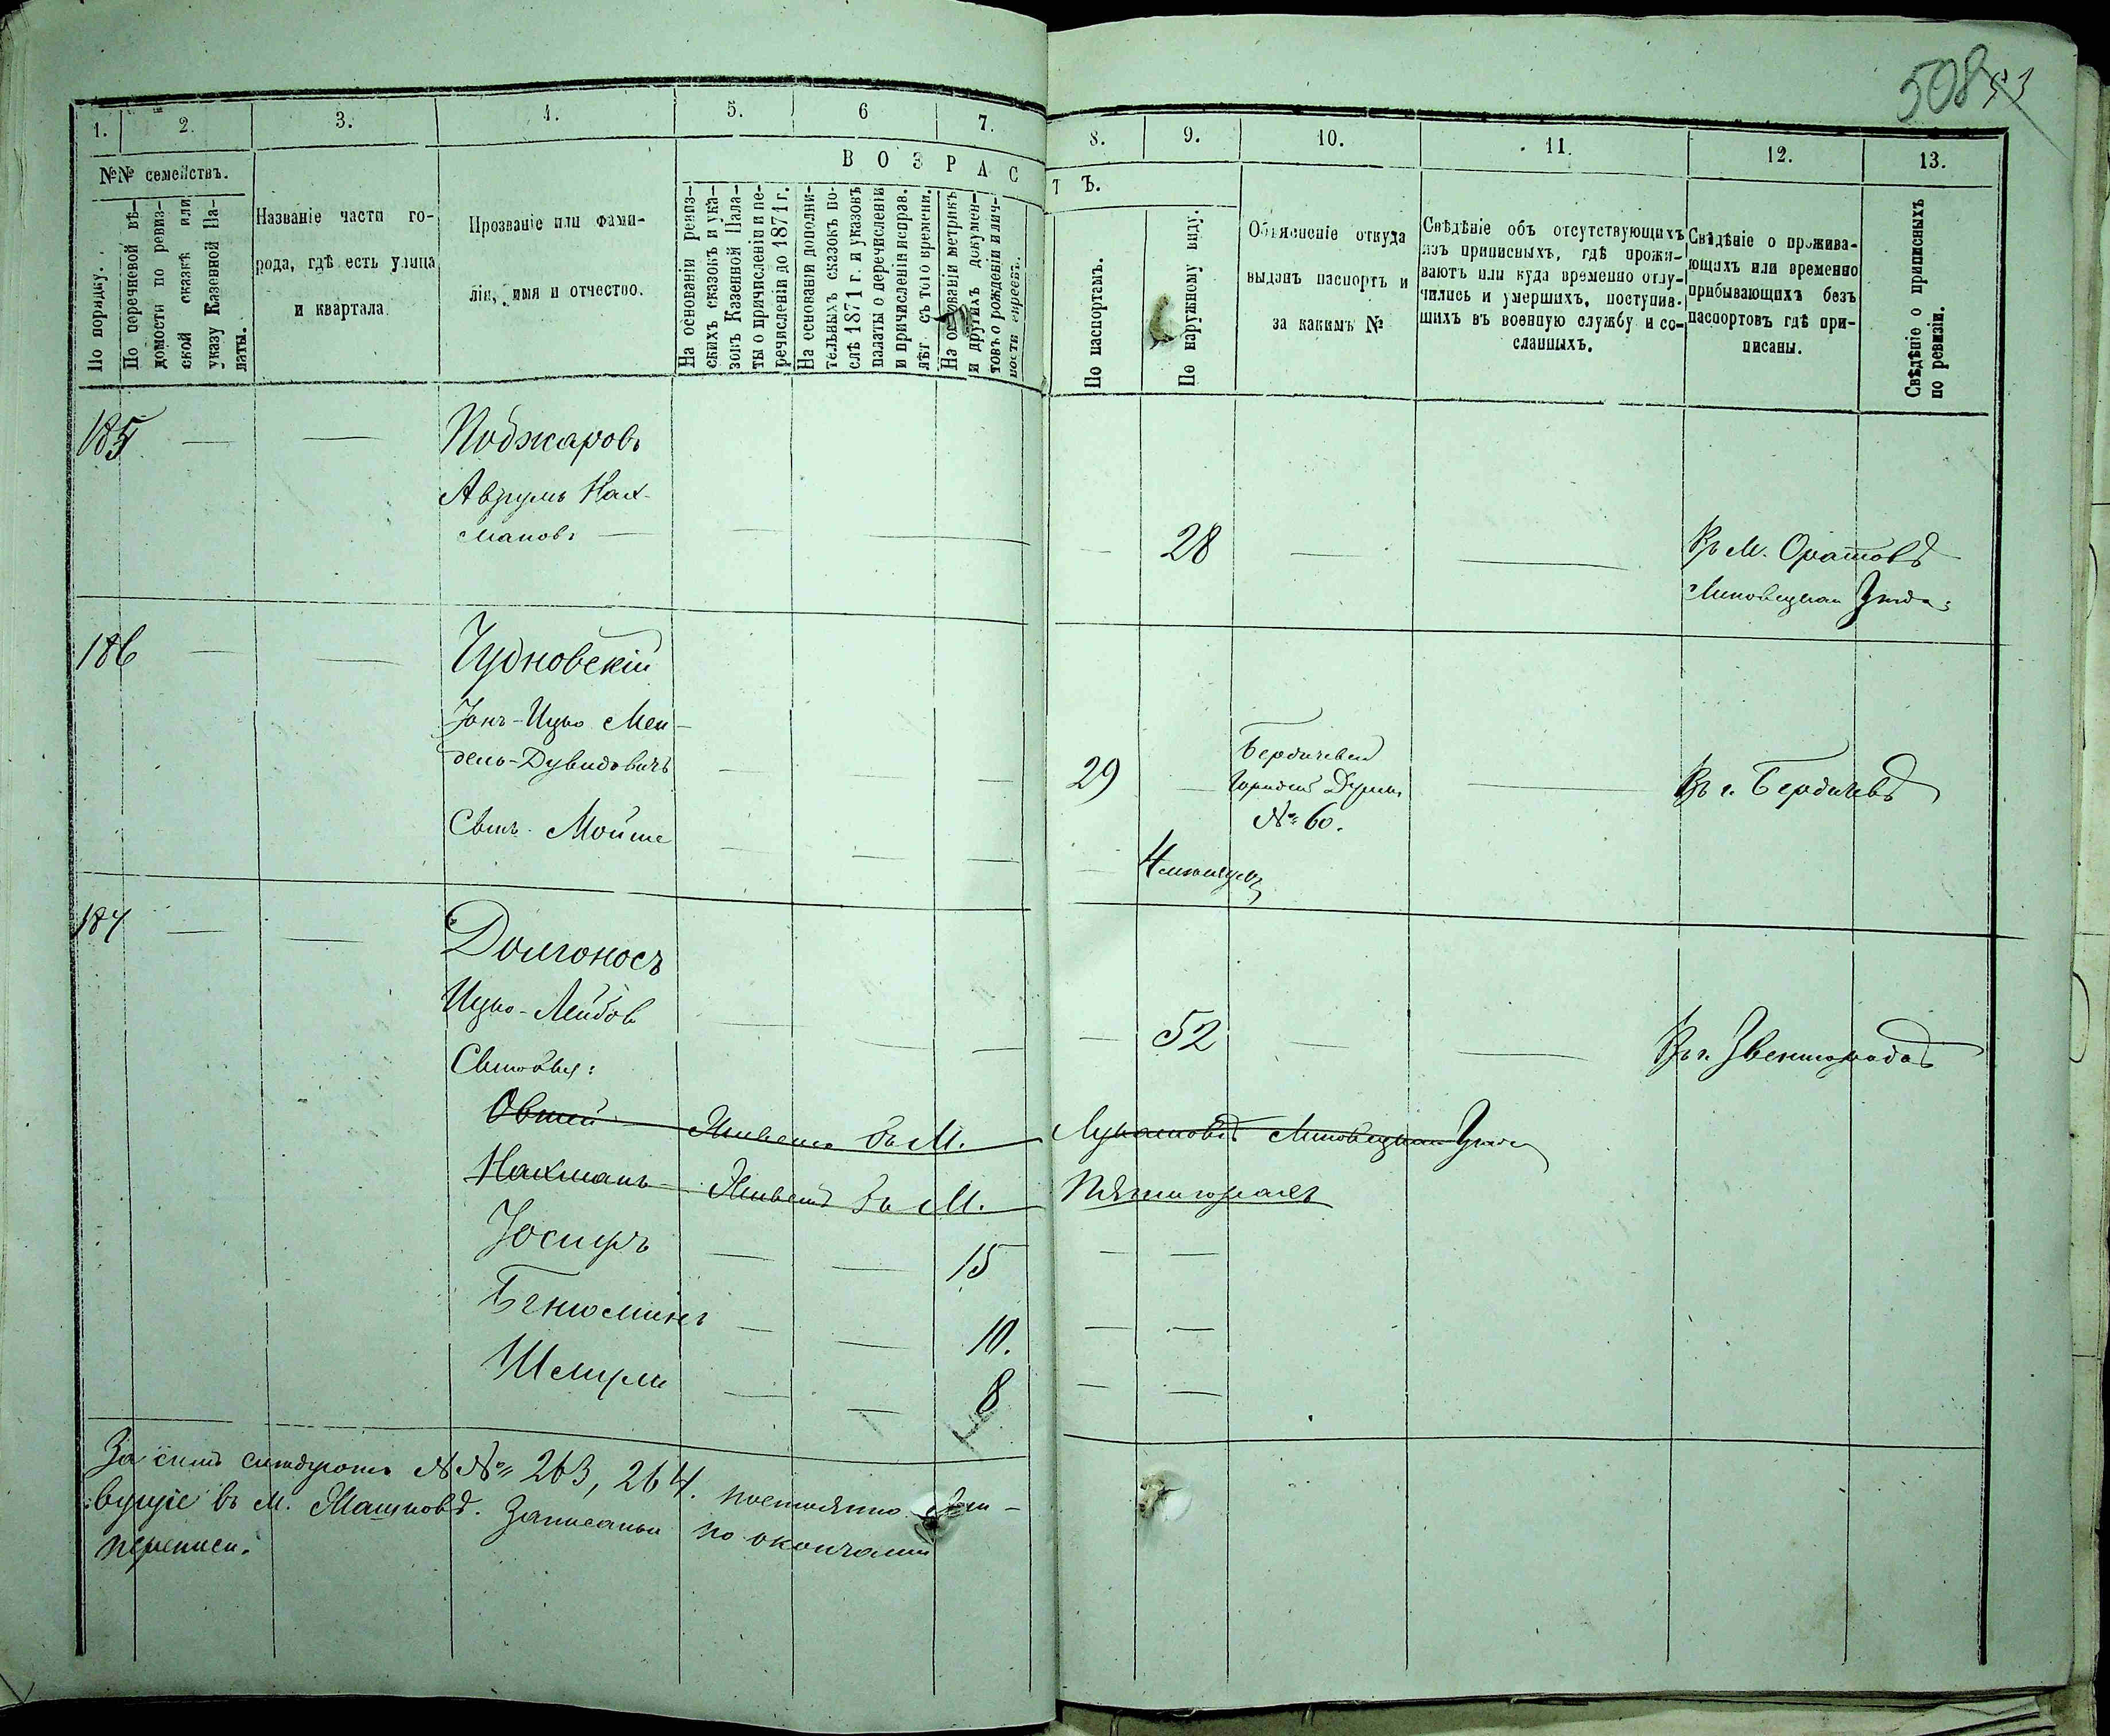 508
1. 2. 3. 4. 5. 6 7.
№№ семействъ.
По порядку.
По перечневой вѣ-
домости по ревиз-
ской сказкѣ или
указу Казенной Па-
латы.
Названіе части го-
рода, гдѣ есть улица
и квартала
Прозваніе или фами-
лія, имя и отчество.
ВОЗРАС
На основаніи ревиз-
скихъ сказокъ и ука-
зовъ Казенной Пала-
ты о причисленіи и пе-
речисленіи до 1871 г.
На основаніи дополни-
тельныхъ сказокъ по-
слѣ 1871 г. и указовъ
палаты о перечисленіи
и причисленіи исправ.
лѣт съ того времени.
На основаніи метрикъ
и другихъ докумен-
товъ о рожденіи и лич-
ности евреевъ.
8. 9. 10. 11. 12. 13.
ТЪ.
По паспортамъ.
По наружному виду.
Объясненіе откуда
выданъ паспортъ и
за какимъ №
Свѣдѣніе объ отсутствующихъ
изъ приписныхъ, гдѣ прожи-
ваютъ или куда временно отлу-
чились и умершихъ, поступив-
шихъ въ военную службу и со-
сланныхъ.
Свѣдѣніе о прожива-
ющихъ или временно
прибывающихъ безъ
паспортовъ гдѣ при-
писаны.
Свѣдѣніе о приписныхъ
по ревизіи.
185 — — Поджаровъ
Аврумъ Нах-
мановъ — — — — 28 — — Въ М. Оратовѣ
Липовецкаго Уѣзда
186 — — Чудновскій
Іонъ-Ицко Мен-
дель-Дувидовичъ — — — 29 — Бердичевск
Городск Думы
№ 60. — Въ г. Бердичевѣ
Сынъ Мойше — — — — 4 мѣсяцев
187 — — Долгоносъ
Ицко-Лейбов — — — — 52 — — Въ г. Звенигородкѣ
Сыновья:
Овшей Живетъ въ М. Лукашовкѣ Липовецкаго Уѣзда
Нахманъ Живетъ въ М. Пятигорахъ
Іосифъ — — 15 — —
Бенюминъ — — 10. — —
Шмуль — — 8 — —
За симъ смотрѣть №№ 263, 264. постоянно жи-
вущіе въ М. Машковѣ. Записаны по окончаніи
переписи.